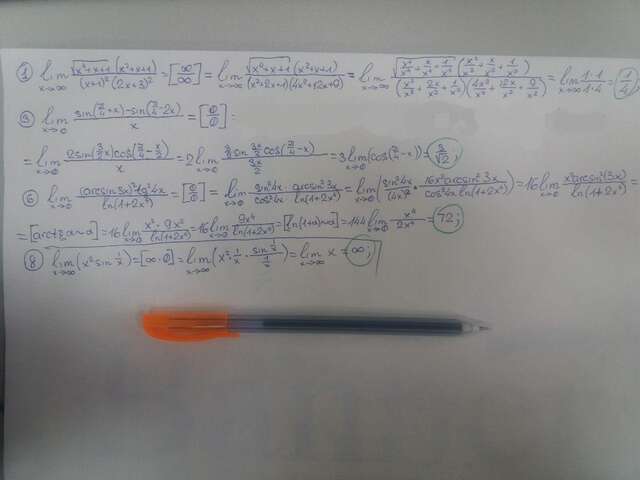 ① lim x→∞ √(x⁴+x+1) (x²+x+1) / (x+1)² (2x+3)² = [∞/∞] = lim x→∞ √(x⁴+x+1) (x²+x+1) / (x²+2x+1)(4x²+12x+9) = lim x→∞ √(x⁴/x⁴ + x/x⁴ + 1/x⁴) (x²/x² + x/x² + 1/x²) / (x²/x² + 2x/x² + 1/x²)(4x²/x² + 12x/x² + 9/x²) = lim x→∞ 1·1 / 1·4 = 1/4;
sin(π/4+x)−sin(π/4−2x) / x = [0/0] =
= lim x→0 2sin(3/2 x)cos(π/4−x/2) / x = 2 lim x→0 = 3 lim x→0 (cos(π/4−x)) = 3/√2;
⑥ lim x→0 (arcsin3x)² tg²4x / ln(1+2x⁴) = [0/0] = lim x→0 sin²4x · arcsin²3x / cos²4x ln(1+2x⁴) = lim x→0 (sin²4x / (4x)² · 16x² arcsin²3x / cos²4x ln(1+2x⁴)) = 16 lim x→0 x² arcsin²(3x) / ln(1+2x⁴) =
= 16 lim x→0 x²·9x² / ln(1+2x⁴) = 16 lim x→0 9x⁴ / ln(1+2x⁴) = [ln(1+α)~α] = 144 lim x→0 x⁴ / 2x⁴ = 72;
⑧ lim x→∞ (x² sin 1/x) = [∞·0] = lim x→∞ (x²· 1/x · sin 1/x / 1/x) = lim x→∞ x = ∞;